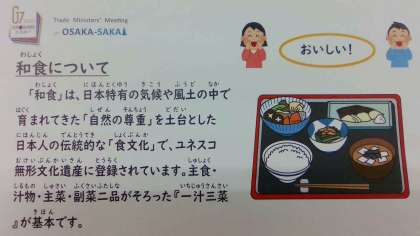 G7
Trade Ministers' Meeting
in OSAKA-SAKAI
おいしい！
わしょく
和食について
わしょく　にほんとくゆう　きこう　ふうど　なか
「和食」は、日本特有の気候や風土の中で
はぐく　しぜん　そんちょう　どだい
育まれてきた「自然の尊重」を土台とした
にほんじん　でんとうてき　しょくぶんか
日本人の伝統的な「食文化」で、ユネスコ
むけいぶんかいさん　とうろく　しゅしょく
無形文化遺産に登録されています。主食・
しるもの　しゅさい　ふくさいふたしな　いちじゅうさんさい
汁物・主菜・副菜二品がそろった『一汁三菜
きほん
』が基本です。